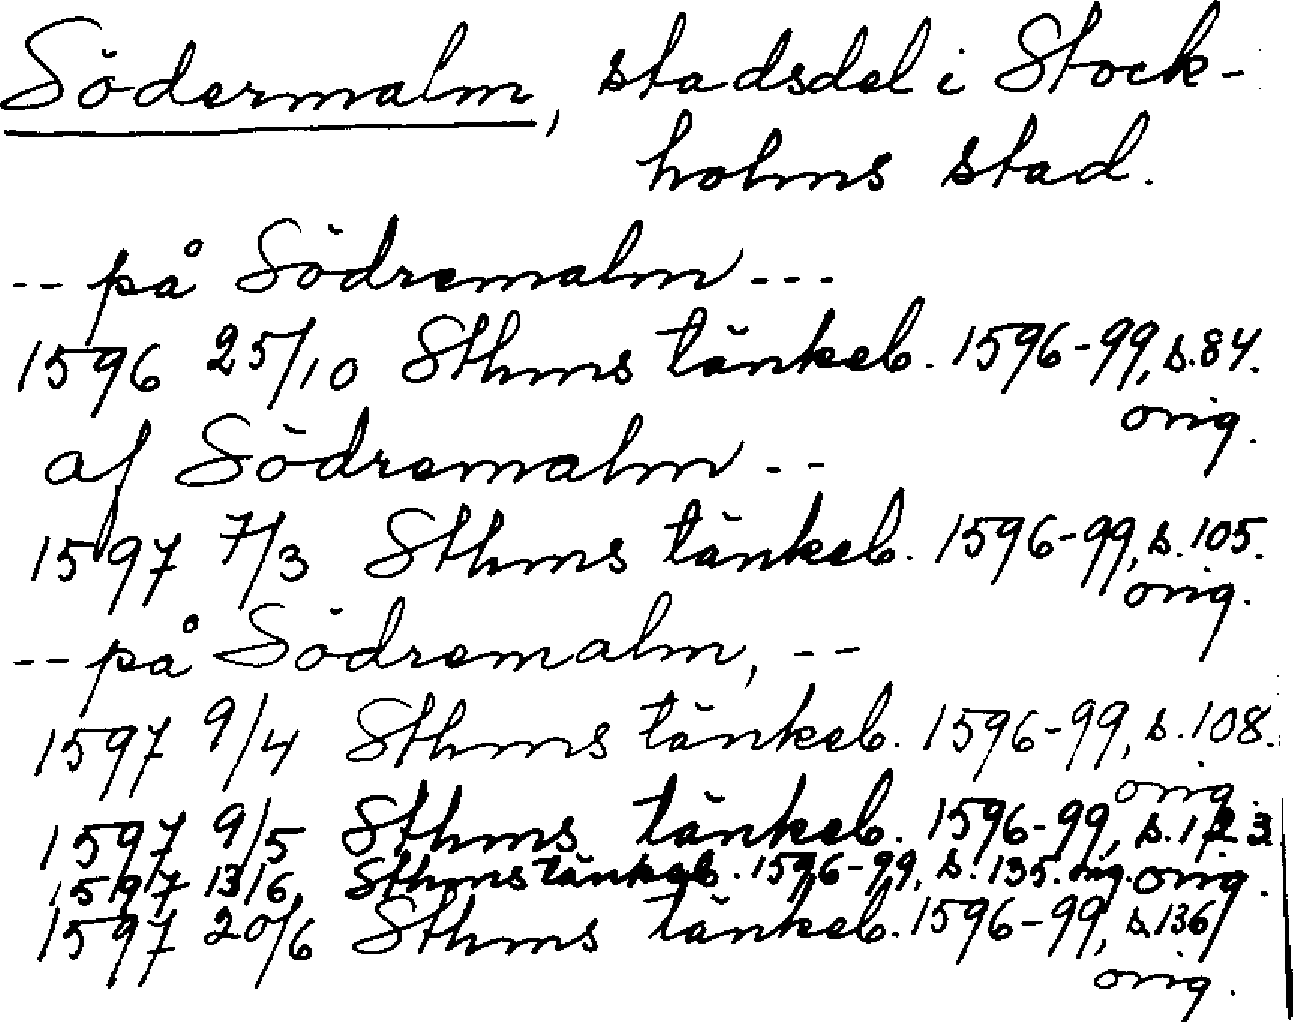 Södermalm, stadsdel i Stock-
holms stad.
-- på Södremalm ---
1596 25/10 Sthms tänkeb. 1596-99, s. 84.
orig.
af Södremalm --
1597 7/3 Sthms tänkeb. 1596-99, s. 105.
orig.
-- på Södremalm, --
1597 9/4 Sthms tänkeb. 1596-99, s. 108.
orig.
1597 9/5 Sthms tänkeb. 1596-99, s. 123
orig.
1597 13/6 Sthms tänkeb. 1596-99, s. 135. orig.
1597 20/6 Sthms tänkeb. 1596-99, s. 136
orig.